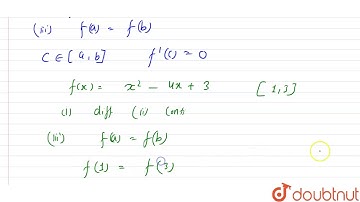 (iii) f(a) = f(b)
C ∈ [a, b] f'(c) = 0
f(x) = x² - 4x + 3 [1,3]
(i) diff (ii) cont
(iii) f(a) = f(b)
f(1) = f(3)
doubtnut